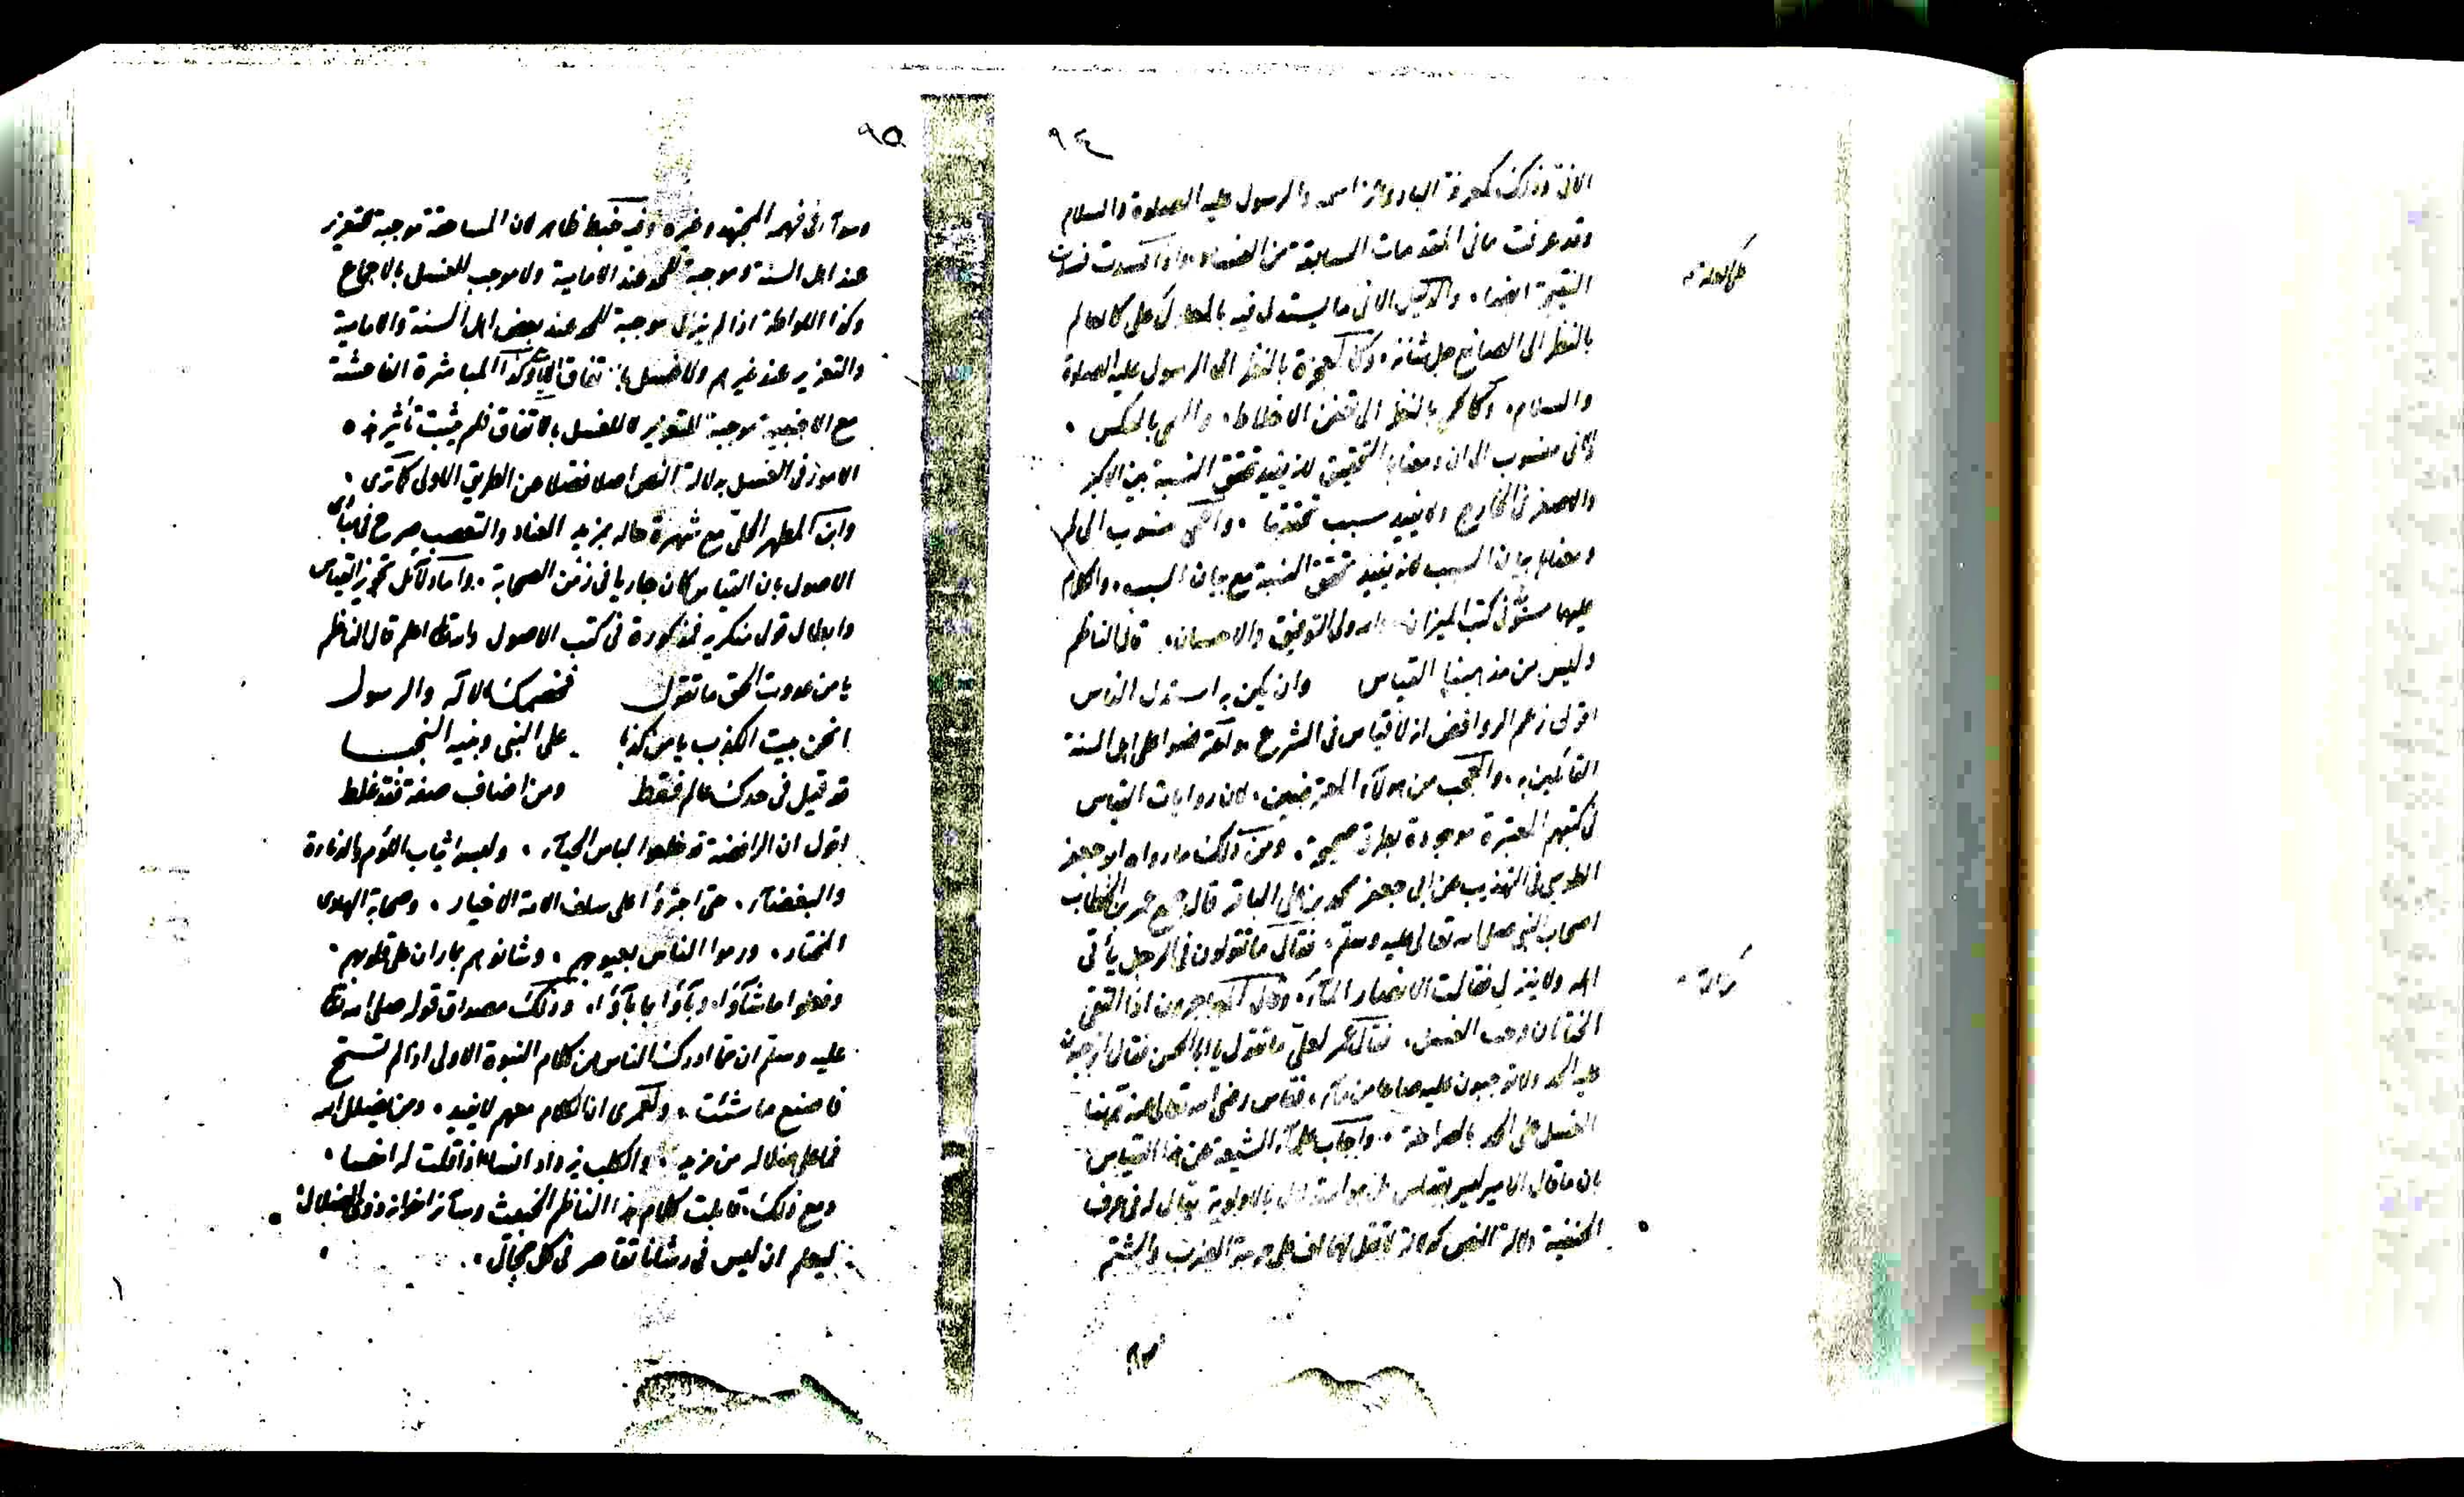 ٩٤
وذلك كمعرفة الباري عز اسمه والرسول عليه الصلوة والسلام
وقد عرفت ما في المقدمات السابقة من الفساد واذا فسدت
النتيجة ايضا، والدليل الاني ما يستدل فيه بالمعلول على كالعالم
بالنظر الى الصانع جل شانه، وكالمعجزة بالنظر الى الرسول عليه الصلوة
والسلام، وكالحمى بالنظر الى تعفن الاخلاط، واللمي بالعكس.
والاني منسوب الى ان ومعناها التحقيق لانه يفيد تحقق النسبة بين الاكبر
والاصغر في الخارج ولا يفيد سبب تحققها، واللمي منسوب الى لم
ومعناه بيان السبب لانه يفيد تحقق النسبة مع بيان السبب، والكلام
عليهما في كتب الميزان والله ولي التوفيق والاحسان. قال الناظم
وليس من مذهبنا القياس وان يكن به استدل الناس
اقول زعم الروافض انه لا قياس في الشرع واعترضوا على اهل السنة
القائلين به، والعجب من هولاء المعترضين، لان روايات القياس
في كتبهم المعتبرة موجودة بطرق صحيحة، ومن ذلك ما رواه ابو جعفر
الطوسي في التهذيب عن ابي جعفر محمد بن علي الباقر قال جمع عمر بن الخطاب
اصحاب النبي صلى الله تعالى عليه وسلم، فقال ما تقولون في الرجل يأتي
اهله ولا ينزل فقالت الانصار الماء، وقال المهاجرون اذا التقى
الختانان وجب الغسل، فقال عمر لعلي ما تقول يا ابا الحسن فقال اتوجبون
عليه الحد ولا توجبون عليه صاعا من ماء، فقاس رضي الله تعالى عنه
الغسل على الحد بالصراحة، واجاب علماء الشيعة عن هذا القياس
بان ما قال الامير ليس بقياس بل هو استدلال بالاولوية يقال له في عرف
الحنفية دلالة النص كدلالة لا تقل لهما اف على حرمة الضرب والشتم
٩٥
وسواء في فهمه المجتهد وغيره وفيه خبط ظاهر لان المساحقة موجبة للتعزير
عند اهل السنة وموجبة للحد عند الامامية ولا موجب للغسل بالاجماع
وكذا اللواطة اذا لم ينزل موجبة للحد عند بعض اهل السنة والامامية
والتعزير عند غيرهم ولا غسل باتفاق وكذا المباشرة الفاحشة
مع الاجنبية موجبة للتعزير لا للغسل بالاتفاق فلم يثبت تأثير هذه
الامور في الغسل بدلالة النص اصلا فضلا عن الطريق الاولى كما ترى.
وابن المطهر الحلي مع شهرة حاله بمزيد العناد والتعصب صرح في
الاصول بان القياس كان جاريا في زمن الصحابة، واما دلائل تجويز القياس
وابطال قول منكريه فمذكورة في كتب الاصول والله تعالى اعلم قال الناظم
يا من عدوت الحق ما تقول فخصمك الاله والرسول
انحن بيت الكذب يا من كذبا على النبي وبنيه النجبا
قد قيل في حدك ظالم فقط ومن اضاف صفة فقد غلط
اقول ان الرافضة قد خلعوا لباس الحياء، ولبسوا ثياب اللؤم والعداوة
والبغضاء، حتى اجترؤا على سلف الامة الاخيار، وصحابة الهادي
المختار، ورموا الناس بعيوبهم، وشانوهم بما ران على قلوبهم.
وفعلوا ما شاؤا، وباؤا بما باؤا، وذلك مصداق قوله صلى الله تعالى
عليه وسلم ان مما ادرك الناس من كلام النبوة الاولى اذا لم تستح
فاصنع ما شئت، ولعمري ان الكلام معهم لا يفيد، ومن يضلل الله
فما على ضلاله من مزيد، والكلب يزداد اذا قلت له اخسا.
ومع ذلك، قابلت كلام هذا الناظم الخبيث وسائر اخوانه ذوي الضلال
ليعلم ان ليس في رشانا تقاصر في كل مجال.